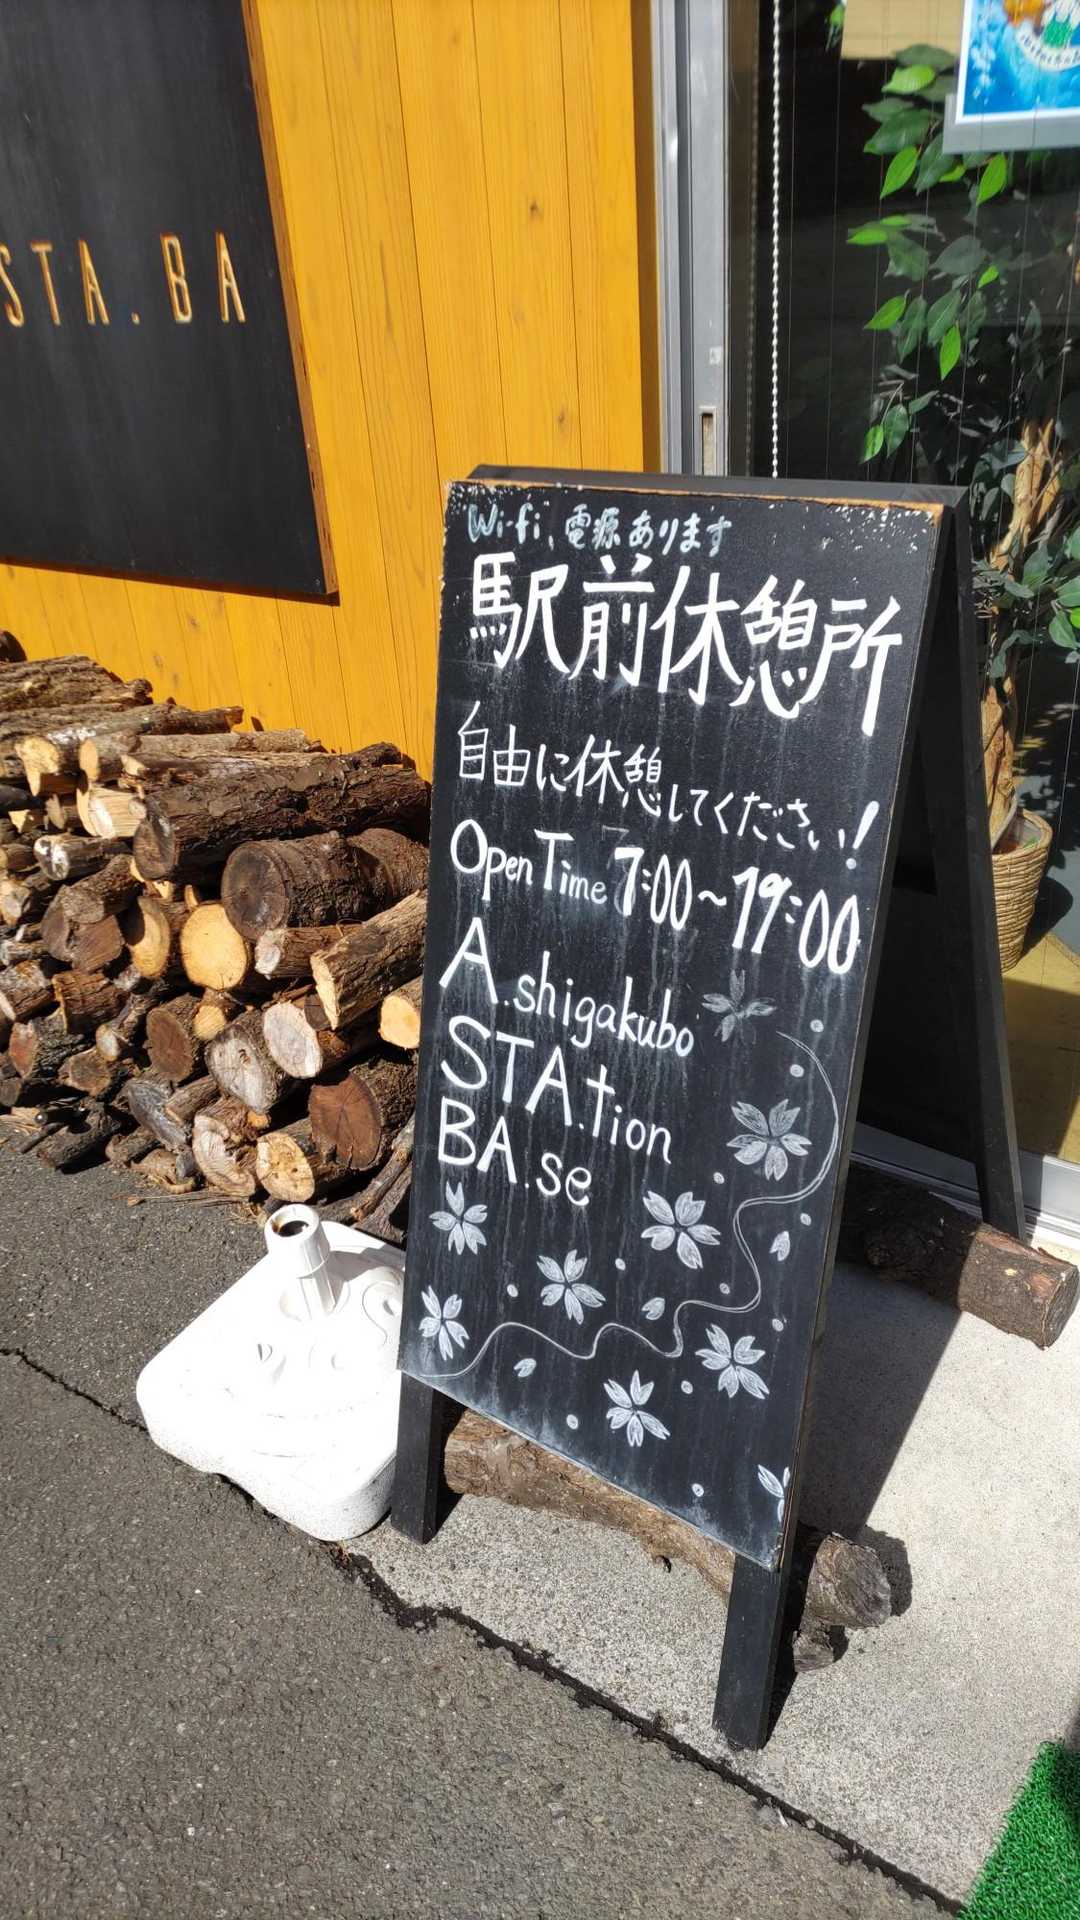 STA.BA
Wi-fi、電源あります
駅前休憩所
自由に休憩してください!
Open Time 7:00~19:00
A.shigakubo
STA.tion
BA.se